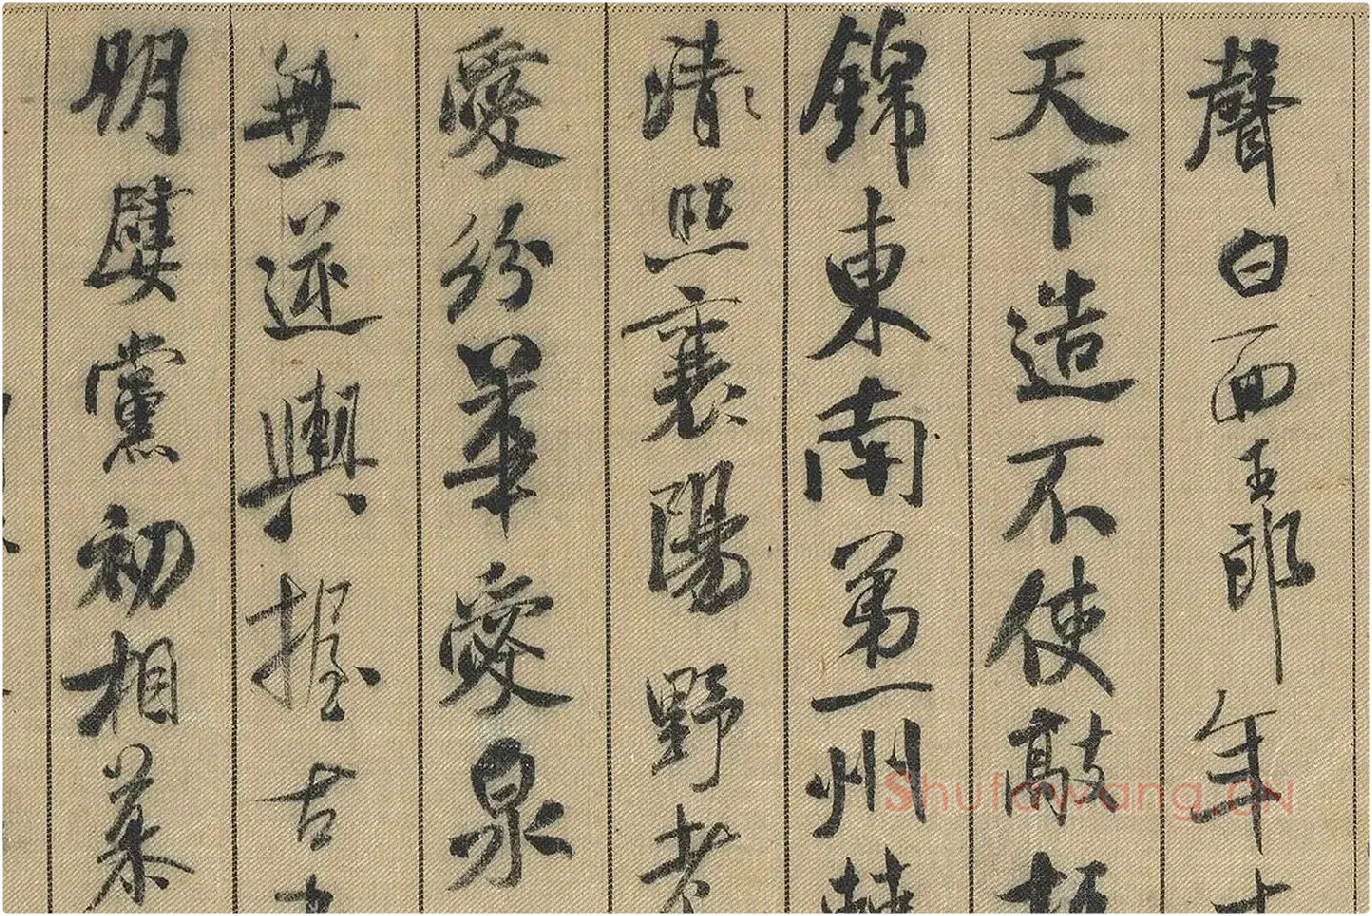 聲白面王郎年
天下造不使敲
錦東南第一州
清照襄陽野老
愛紛華愛泉
無逆輿握古
朋嬖黨初相慕
Shufawang.CN